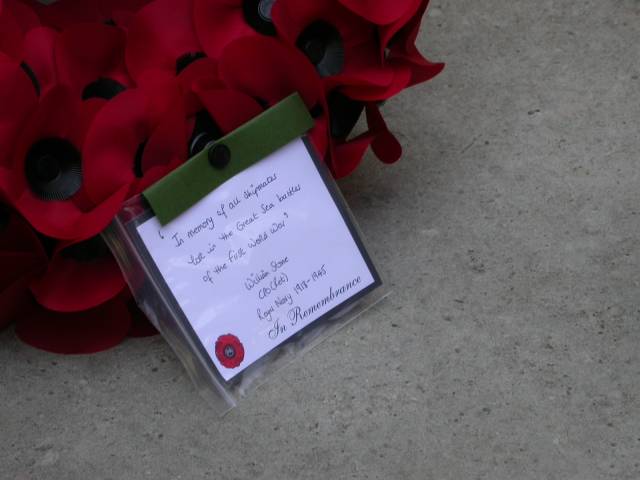 "In memory of all shipmates
lost in the Great Sea battles
of the First World War"
William Stone
CPO (Ret)
Royal Navy 1918-1945
In Remembrance